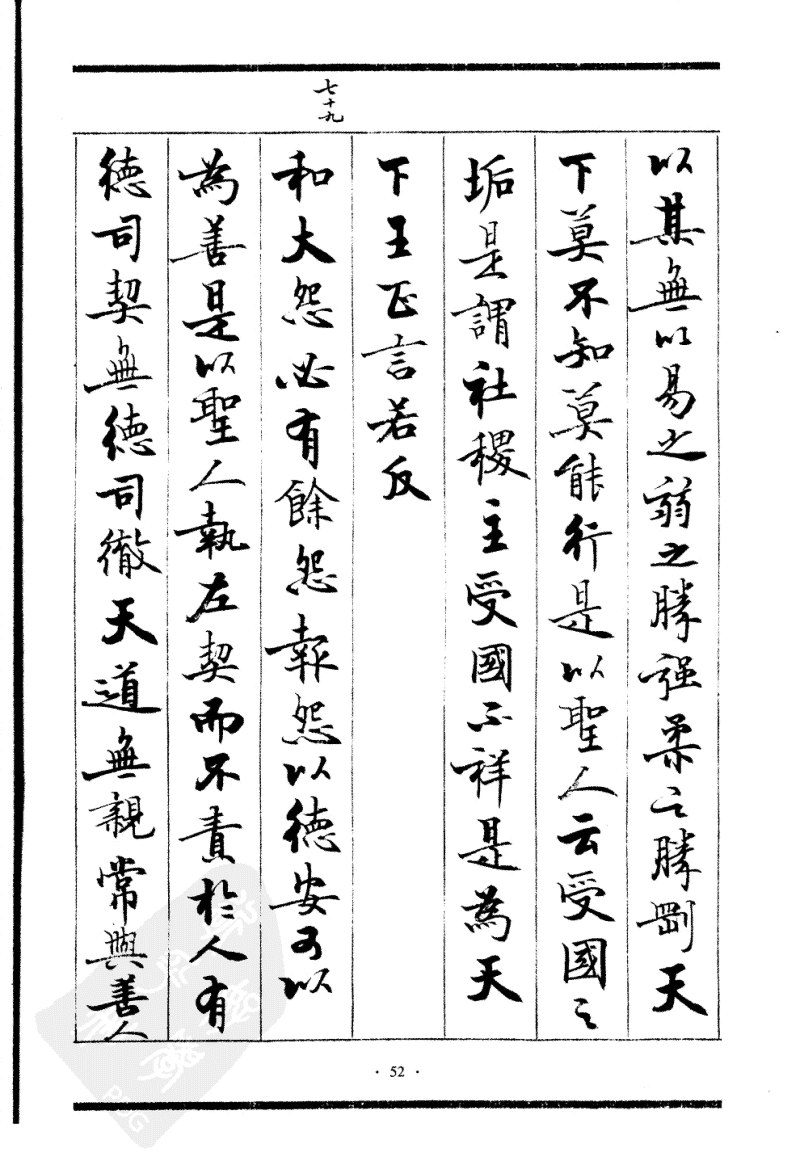 七十九
以其無以易之弱之勝强柔之勝剛天
下莫不知莫能行是以聖人云受國之
垢是謂社稷主受國不祥是為天
下王正言若反
和大怨必有餘怨報怨以德安可以
為善是以聖人執左契而不責於人有
德司契無德司徹天道無親常與善人
· 52 ·
PDG